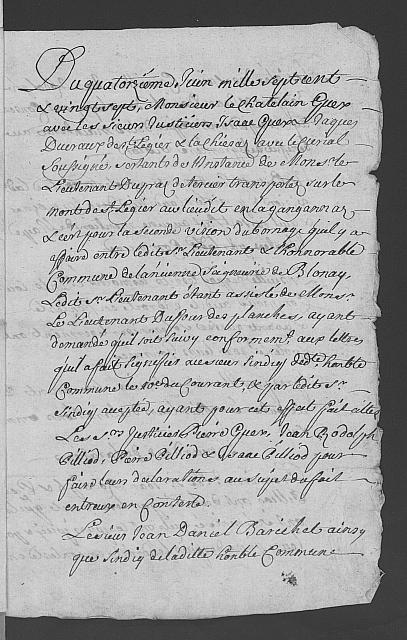 Du quatorzième Juin mille sept cent
& vingt sept, Monsieur le Chatelain Guex
avec les sieurs Justiciers Isaac Guex & Jaques
Ducraux de St Légier & la Chiésaz avec le Curial
soussigné sertants de l'instance de Monsr le
Lieutenant Dupraz de Vercier transportés sur les
monts de St Légier au lieu dit en la gangannaz
& ce pour la seconde vision du bornage qu'il y a
affaire entre ledit Sr Lieutenant & l'honnorable
Commune de l'ancienne Seigneurie de Blonay
Ledit Sr Lieutenant étant assisté de Monsr
Le Lieutenant Dufour des planches, ayant
demandé qu'il soit suivy conformemt aux lettres
qu'il a fait signifier au sieur Sindiq dedte honble
Commune le 10e du Courant, & par ledit Sr
Sindiq accepteé, ayant pour cet effet fait citter
Les Srs Justiciers Pierre Guex, Jean Rodolph
Billiod, Pierre Billiod & Isaac Billiod pour
faire leurs declarations au sujet du fait
entreux en Conteste.
Le sieur Jean Daniel Barichet ainsy
que Sindiq de laditte honble Commune